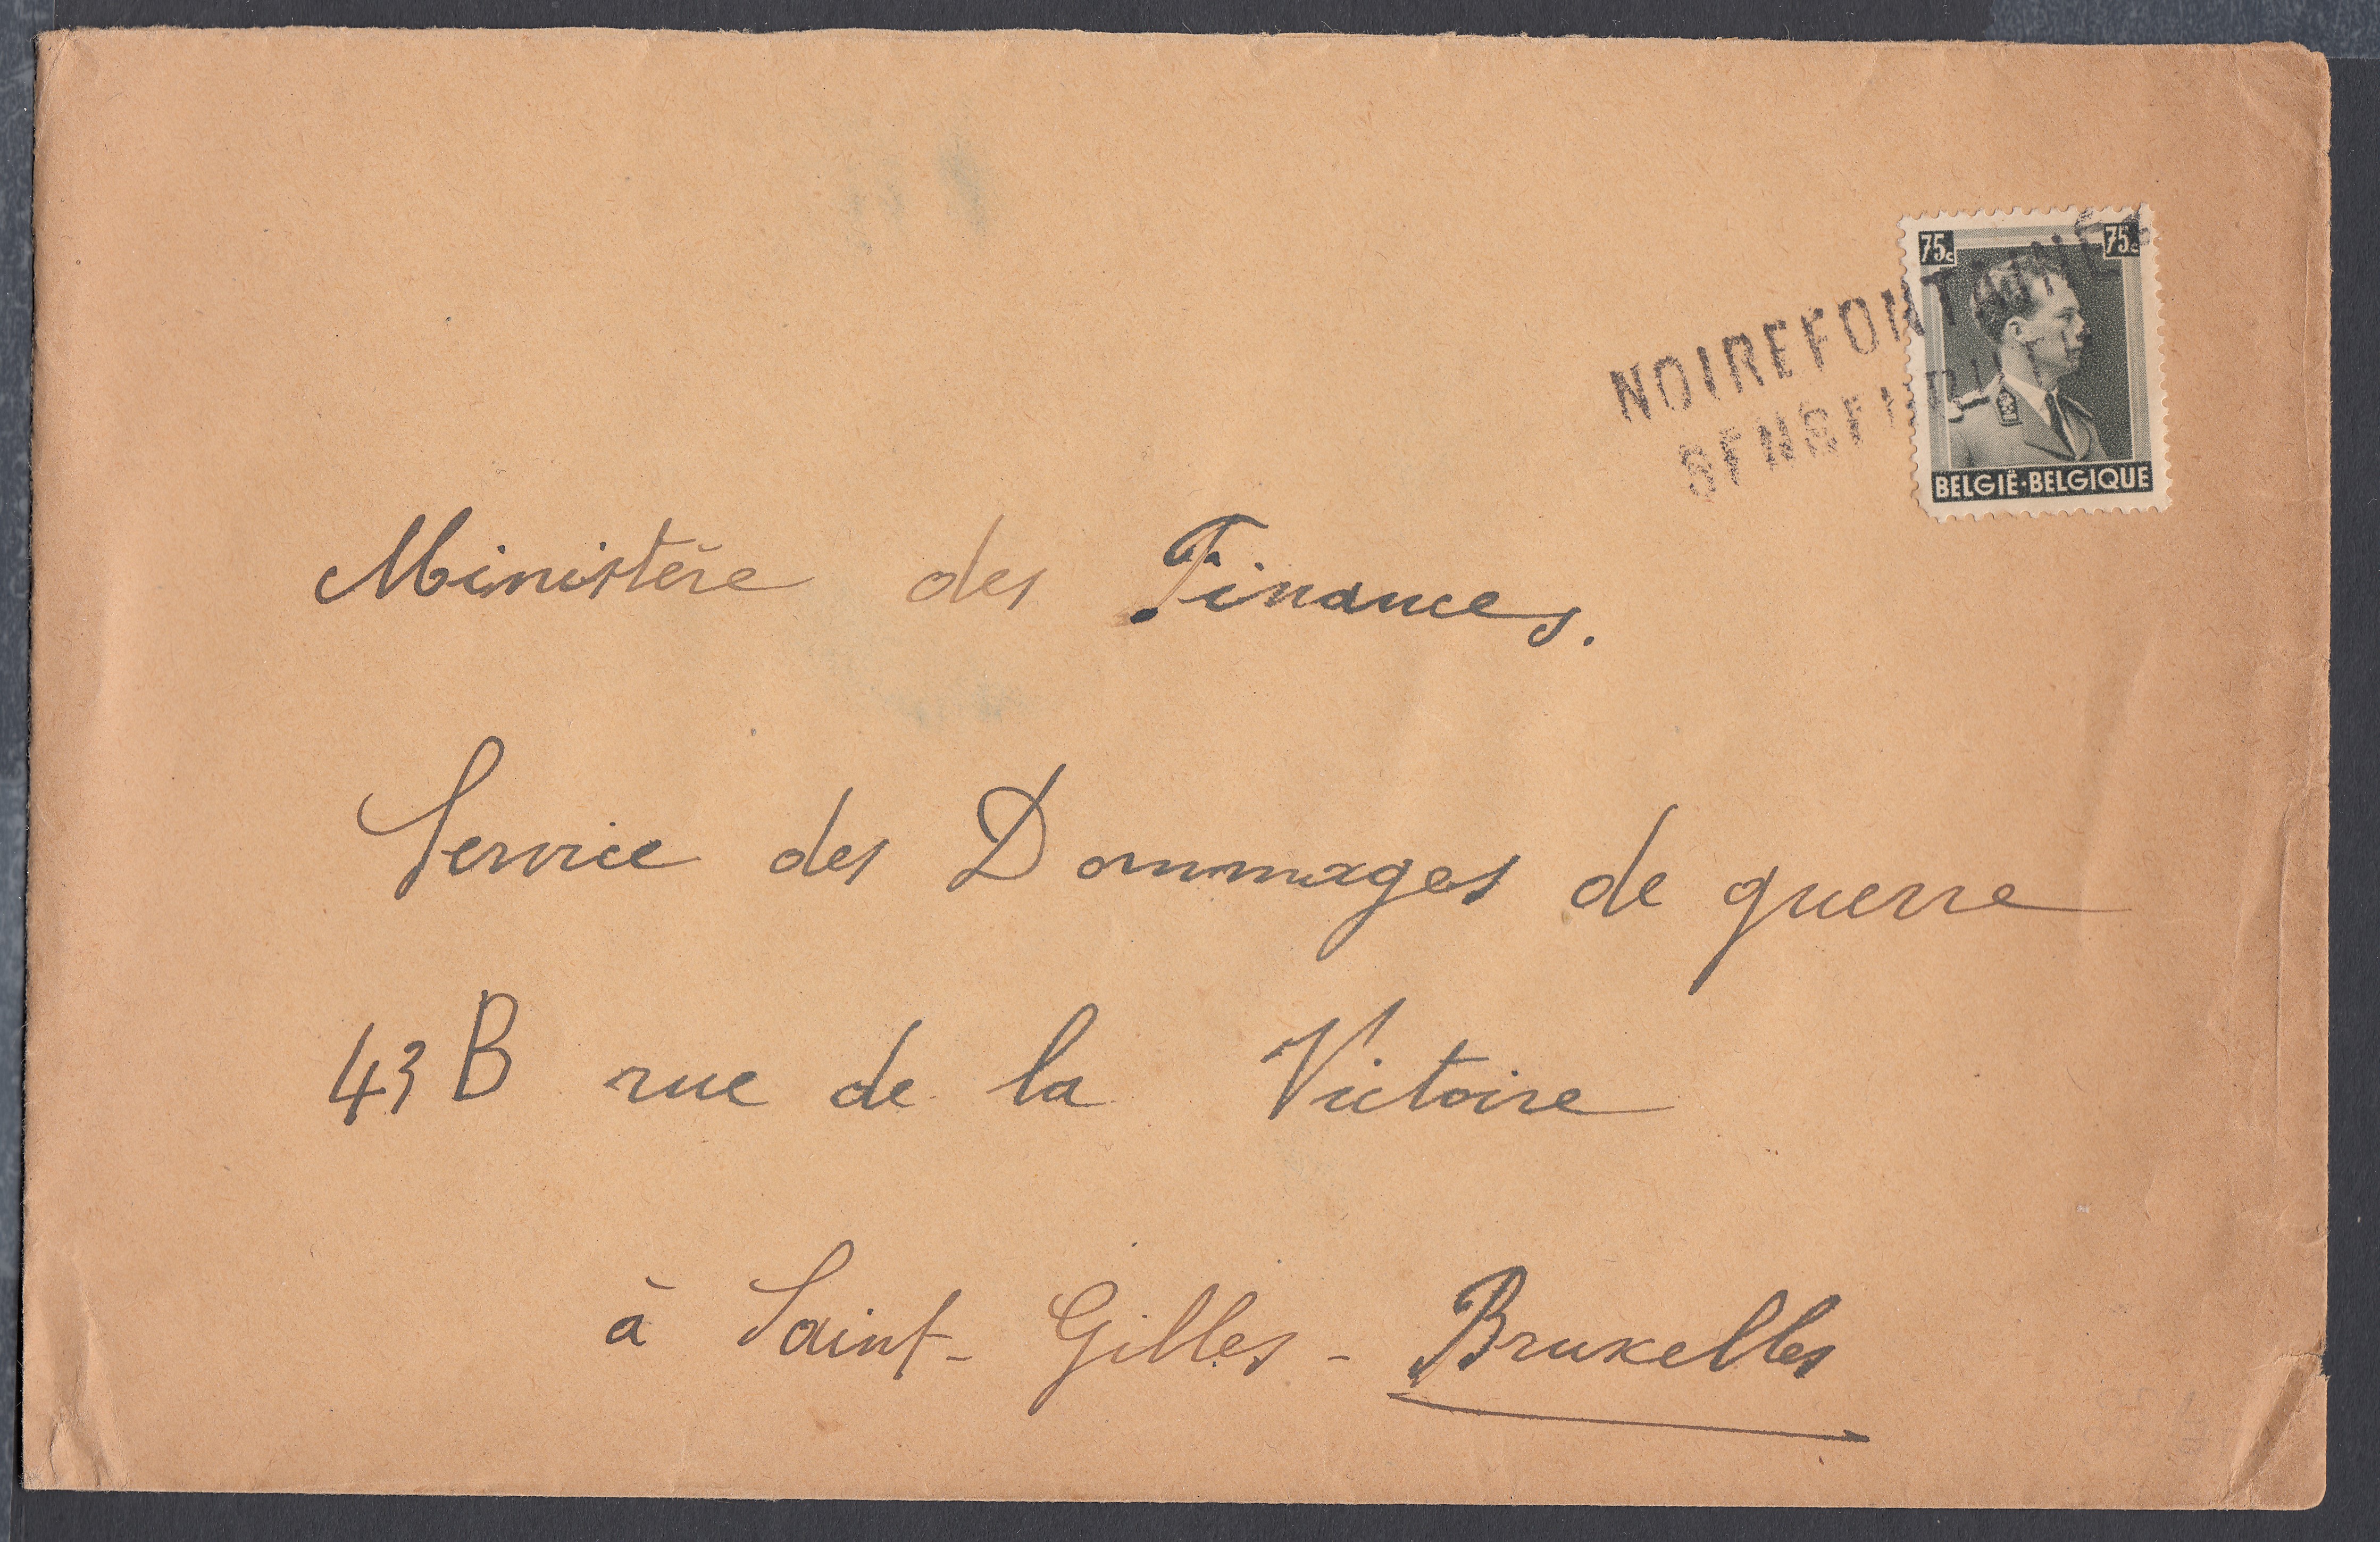 75c 75c
NOIREFONTAINE
SENSENRUTH
BELGIË·BELGIQUE
Ministère des Finances.
Service des Dommages de guerre
43 B rue de la Victoire
à Saint-Gilles-Bruxelles